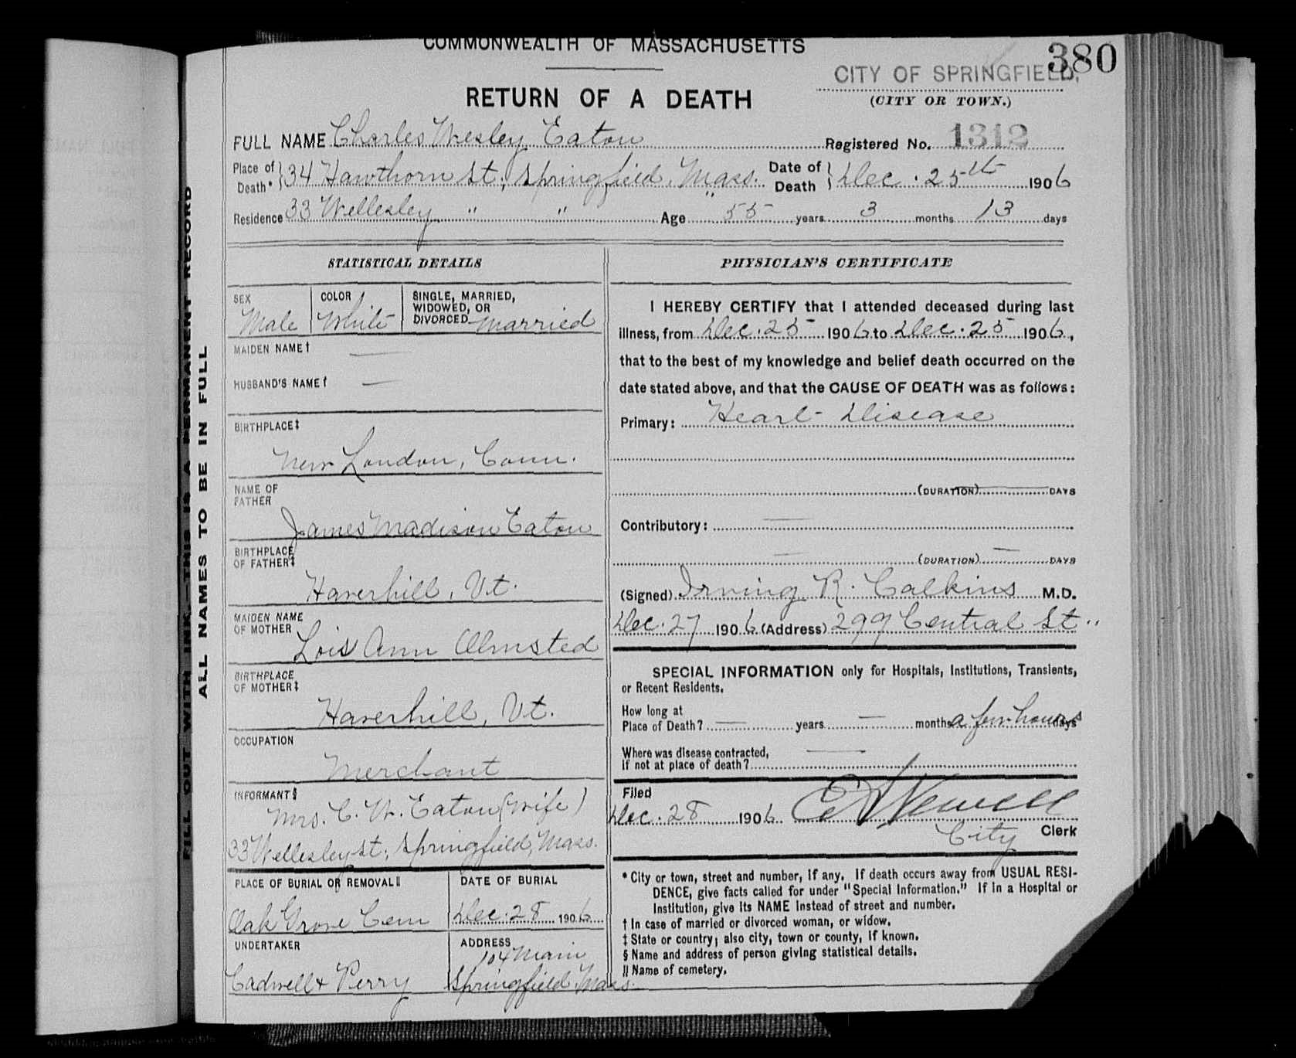 COMMONWEALTH OF MASSACHUSETTS
380
CITY OF SPRINGFIELD,
(CITY OR TOWN.)
RETURN OF A DEATH
FULL NAME Charles Wesley Eaton Registered No. 1312
Place of Death* } 34 Hawthorn St, Springfield, Mass. Date of Death } Dec. 25th 1906
Residence 33 Wellesley " " " Age 55 years 3 months 13 days
STATISTICAL DETAILS
SEX Male COLOR White SINGLE, MARRIED, WIDOWED, OR DIVORCED Married
MAIDEN NAME† —
HUSBAND'S NAME† —
BIRTHPLACE‡
New London, Conn.
NAME OF FATHER
James Madison Eaton
BIRTHPLACE OF FATHER‡
Haverhill, Vt.
MAIDEN NAME OF MOTHER
Lois Ann Olmsted
BIRTHPLACE OF MOTHER‡
Haverhill, Vt.
OCCUPATION
Merchant
INFORMANT§
Mrs. C. W. Eaton (wife)
33 Wellesley St, Springfield, Mass.
PLACE OF BURIAL OR REMOVAL‖ DATE OF BURIAL
Oak Grove Cem Dec. 28 1906
UNDERTAKER ADDRESS
104 Main
Cadwell & Perry Springfield, Mass.
PHYSICIAN'S CERTIFICATE
I HEREBY CERTIFY that I attended deceased during last
illness, from Dec. 25 1906 to Dec. 25 1906,
that to the best of my knowledge and belief death occurred on the
date stated above, and that the CAUSE OF DEATH was as follows:
Primary: Heart Disease
(DURATION) — DAYS
Contributory: —
— (DURATION) — DAYS
(Signed) Irving R. Calkins M.D.
Dec. 27 1906 (Address) 299 Central St "
SPECIAL INFORMATION only for Hospitals, Institutions, Transients,
or Recent Residents.
How long at
Place of Death? — years — months a few hours days
Where was disease contracted,
If not at place of death? —
Filed
Dec. 28 1906 E A Newell
City Clerk
* City or town, street and number, if any. If death occurs away from USUAL RESI-
DENCE, give facts called for under "Special Information." If in a Hospital or
Institution, give its NAME instead of street and number.
† In case of married or divorced woman, or widow.
‡ State or country; also city, town or county, if known.
§ Name and address of person giving statistical details.
‖ Name of cemetery.
FILL OUT WITH INK.—THIS IS A PERMANENT RECORD
ALL NAMES TO BE IN FULL